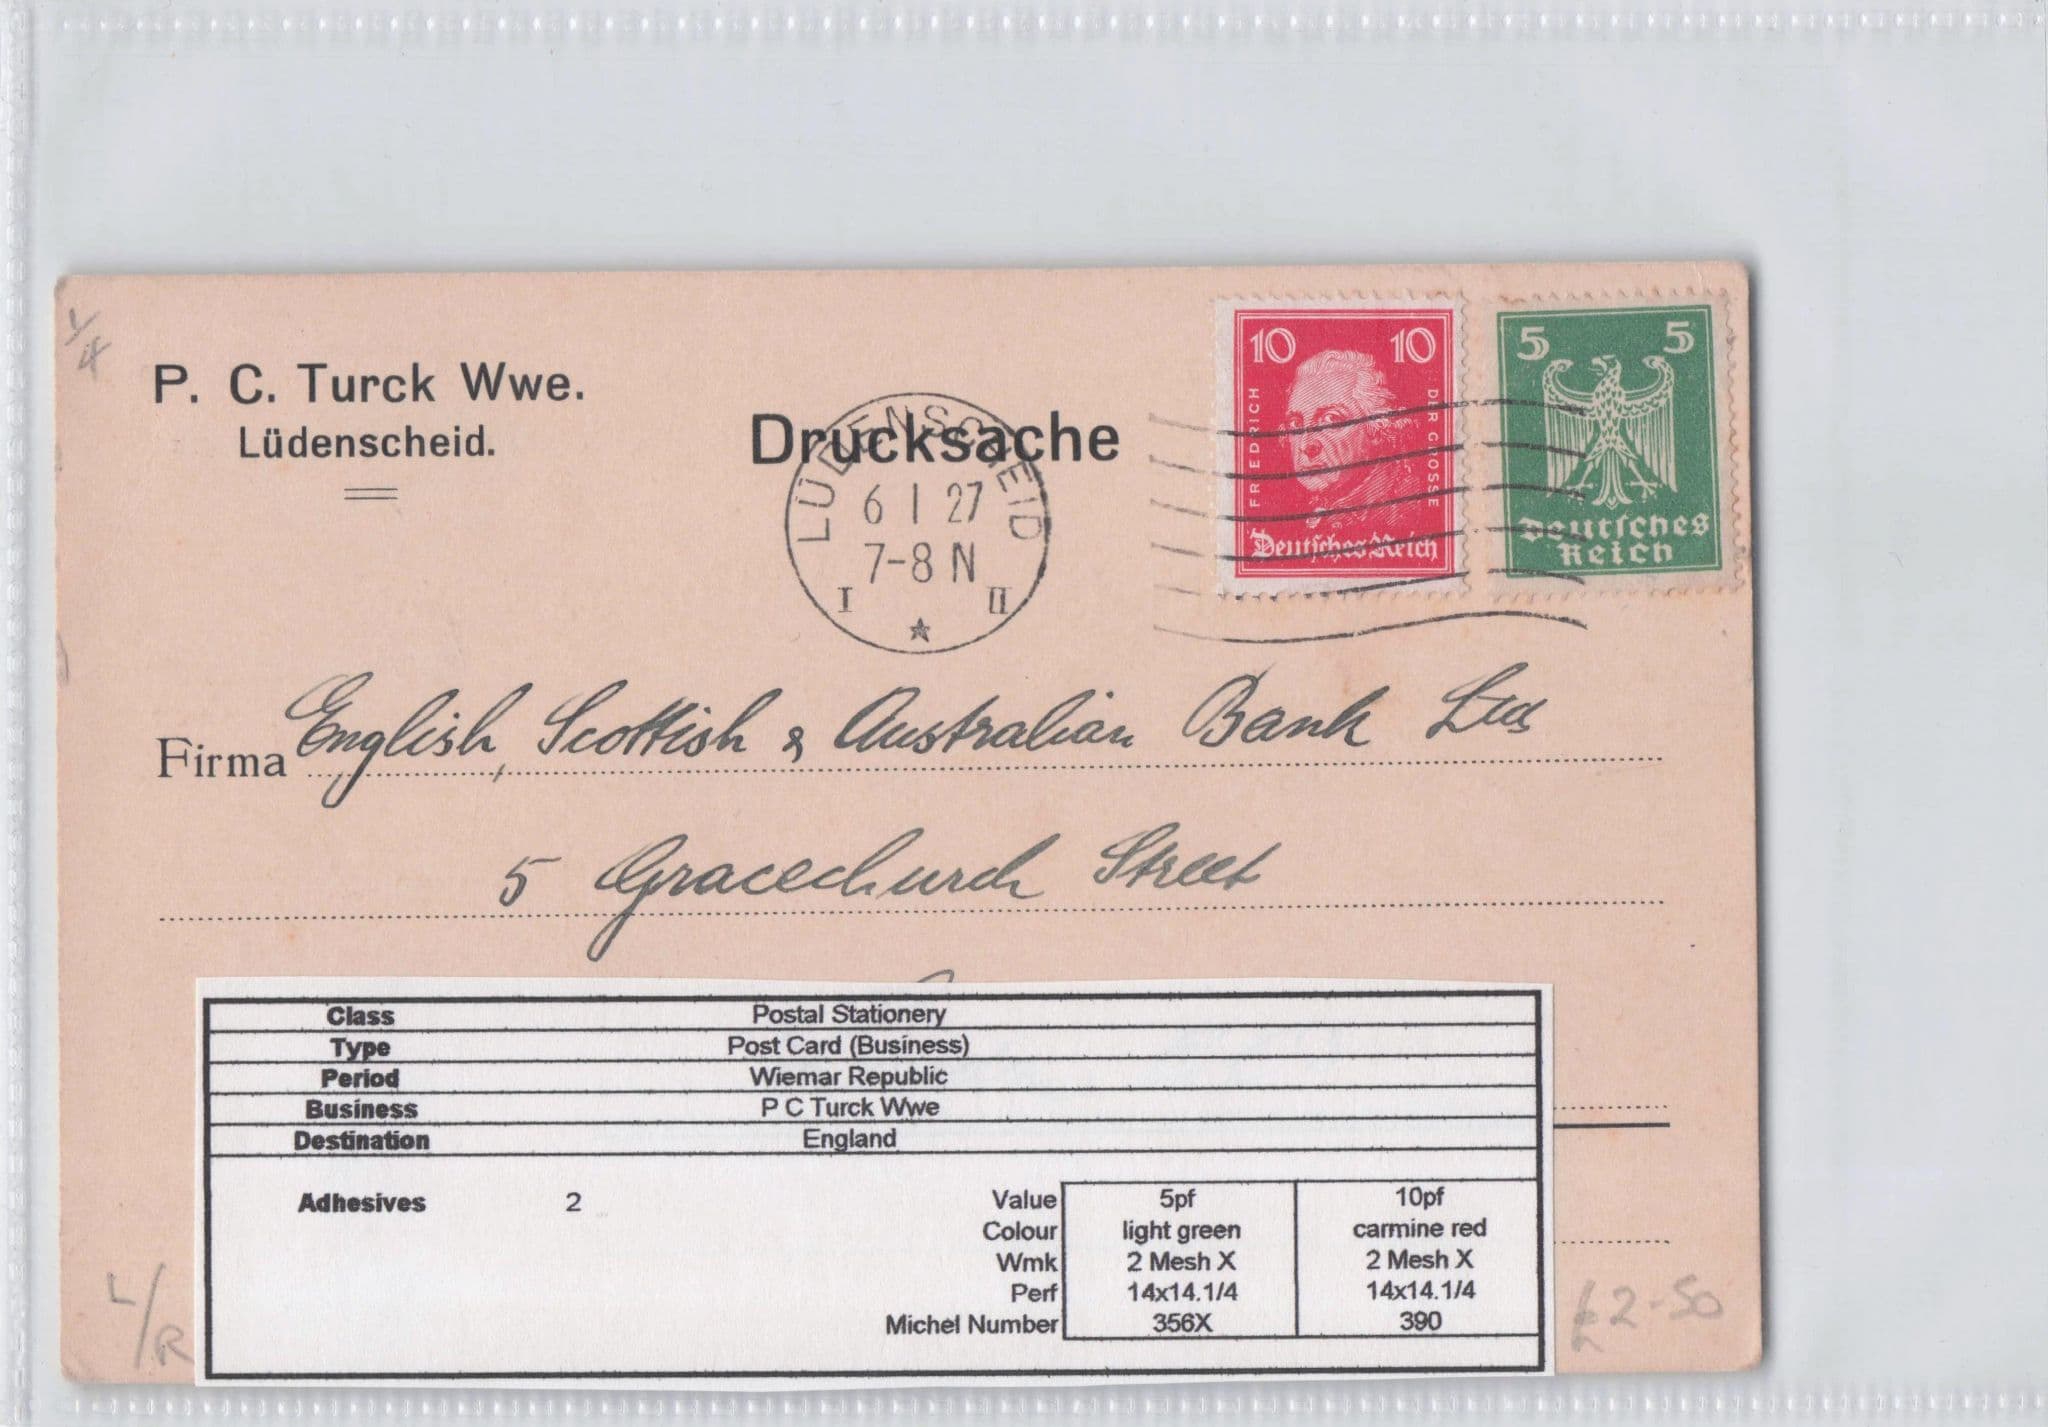 1/4
P. C. Turck Wwe.
Lüdenscheid.
Drucksache
LÜDENSCHEID
6 1 27
7-8 N
I II
10 10
FRIEDRICH DER GROSSE
Deutsches Reich
5 5
Deutsches
Reich
Firma English, Scottish & Australian Bank Ltd
5 Gracechurch Street
Class Postal Stationery
Type Post Card (Business)
Period Wiemar Republic
Business P C Turck Wwe
Destination England
Adhesives 2 Value 5pf 10pf
Colour light green carmine red
Wmk 2 Mesh X 2 Mesh X
Perf 14x14.1/4 14x14.1/4
Michel Number 356X 390
L/R
£2-50